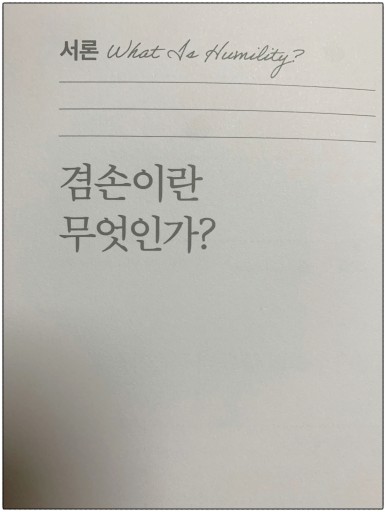 서론 What Is Humility?
겸손이란
무엇인가?